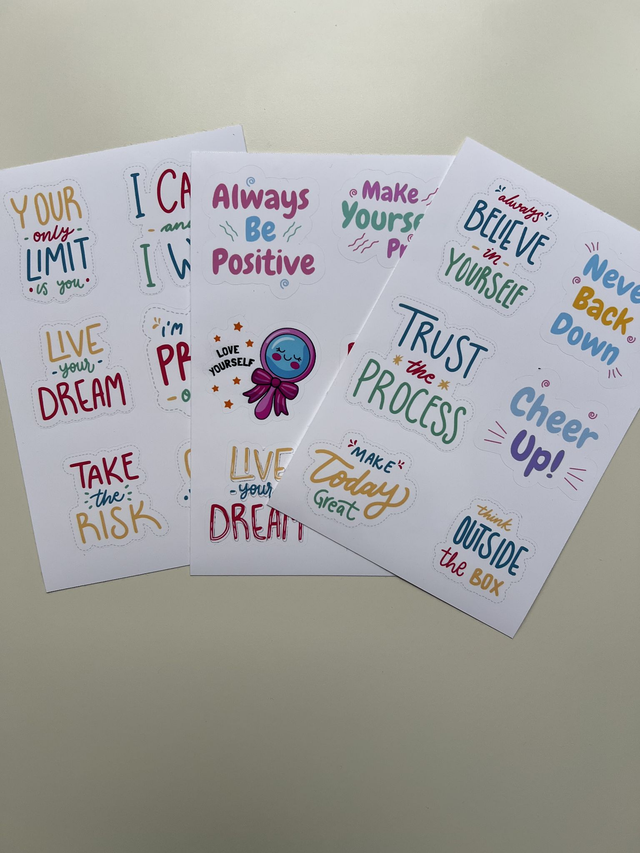 YOUR
only
LIMIT
is you
I CA
an
I W
LIVE
your
DREAM
I'M
PR
TAKE
the
RISK
Always
Be
Positive
Make
Yourse
Pr
LOVE
YOURSELF
LIVE
your
DREAM
always
BELIEVE
in
YOURSELF
Neve
Back
Down
TRUST
the
PROCESS
Cheer
Up!
MAKE
Today
Great
think
OUTSIDE
the BOX